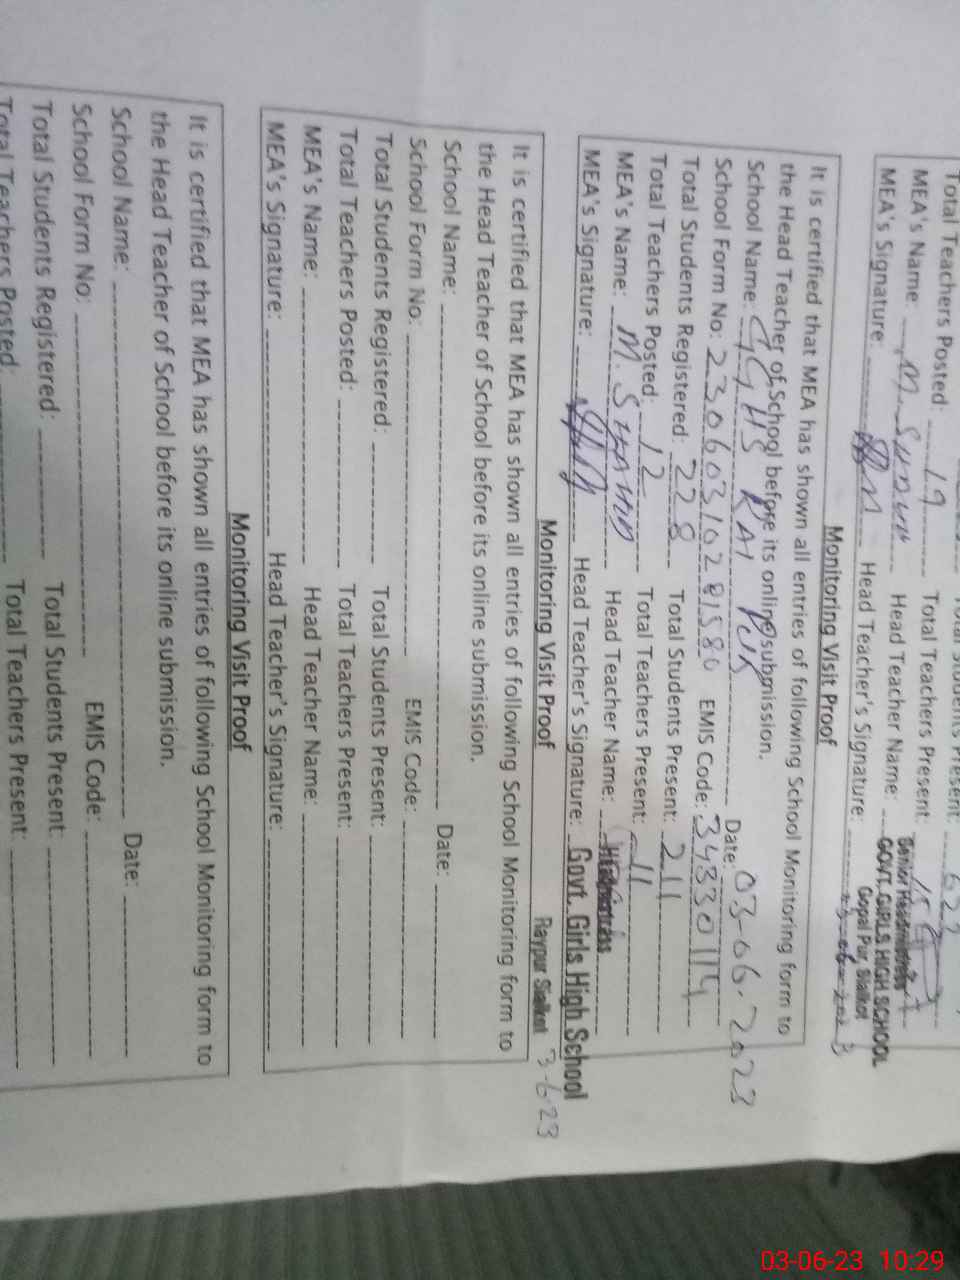 Total Teachers Posted: 19 Total Teachers Present:
MEA's Name: M. Head Teacher Name: Senior Headmistress
MEA's Signature: Head Teacher's Signature: GOVT. GIRLS HIGH SCHOOL
Gopal Pur, Sialkot
Monitoring Visit Proof
It is certified that MEA has shown all entries of following School Monitoring form to
the Head Teacher of School before its online submission.
School Name: GGHS RAI PUR Date: 03-06-2023
School Form No: EMIS Code: 34330114
Total Students Registered: 228 Total Students Present: 211
Total Teachers Posted: 12 Total Teachers Present: 11
MEA's Name: M. Head Teacher Name: Headmistress
MEA's Signature: Head Teacher's Signature: Govt. Girls High School
Raypur Sialkot 3-6-23
Monitoring Visit Proof
It is certified that MEA has shown all entries of following School Monitoring form to
the Head Teacher of School before its online submission.
School Name: Date:
School Form No: EMIS Code:
Total Students Registered: Total Students Present:
Total Teachers Posted: Total Teachers Present:
MEA's Name: Head Teacher Name:
MEA's Signature: Head Teacher's Signature:
Monitoring Visit Proof
It is certified that MEA has shown all entries of following School Monitoring form to
the Head Teacher of School before its online submission.
School Name: Date:
School Form No: EMIS Code:
Total Students Registered: Total Students Present:
Total Teachers Posted: Total Teachers Present:
03-06-23 10:29